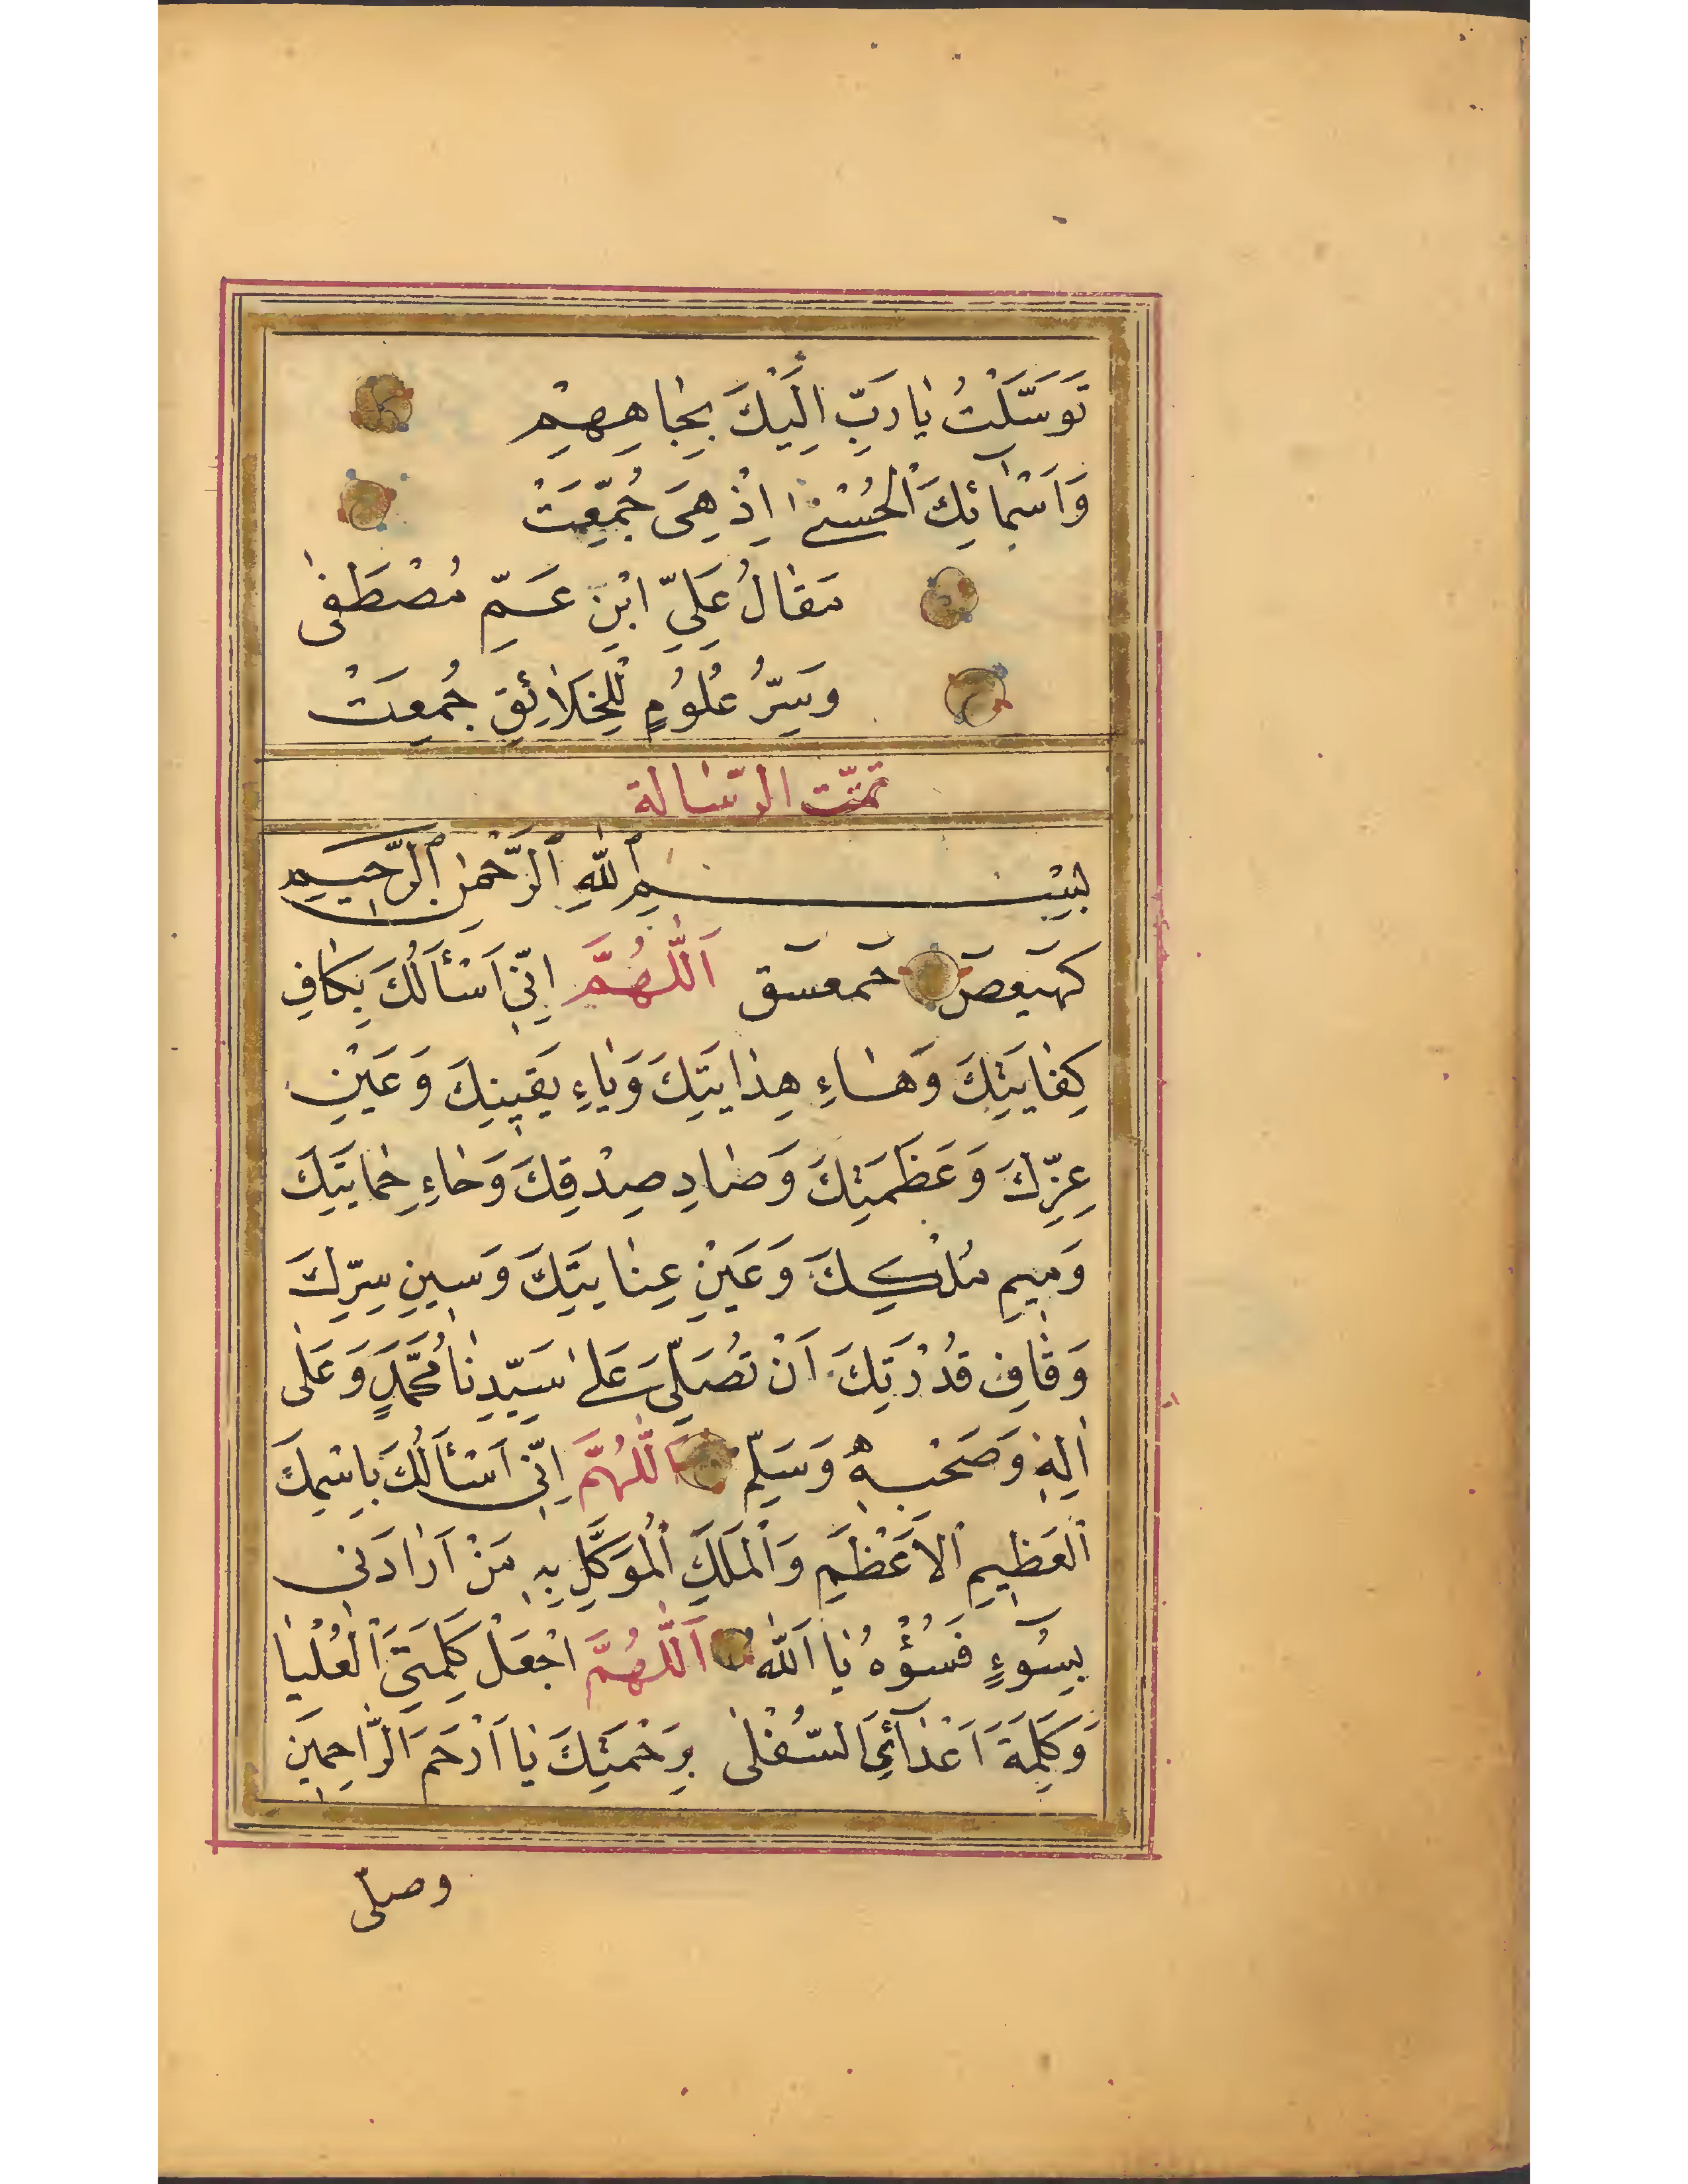 تَوَسَّلْتُ يَا رَبِّ اِلَيْكَ بِجَاهِهِمْ
وَاَسْمَآئِكَ الْحُسْنٰى اِذْ هِىَ جُمِّعَتْ
مَقَالُ عَلِيِّ ابْنِ عَمِّ مُصْطَفٰى
وَسِرُّ عُلُوْمٍ لِلْخَلَائِقِ جُمِعَتْ
تمّت الرّسالة
بِسْمِ اللّٰهِ الرَّحْمٰنِ الرَّحِيمِ
كٓهٰيٰعٓصٓ حٓمٓعٓسٓقٓ اَللّٰهُمَّ اِنِّى اَسْئَلُكَ بِكَافِ
كِفَايَتِكَ وَهَاءِ هِدَايَتِكَ وَيَاءِ يَقِينِكَ وَعَيْنِ
عِزِّكَ وَعَظَمَتِكَ وَصَادِ صِدْقِكَ وَحَاءِ حِمَايَتِكَ
وَمِيمِ مُلْكِكَ وَعَيْنِ عِنَايَتِكَ وَسِينِ سِرِّكَ
وَقَافِ قُدْرَتِكَ اَنْ تُصَلِّىَ عَلٰى سَيِّدِنَا مُحَمَّدٍ وَعَلٰى
اٰلِهٖ وَصَحْبِهٖ وَسَلِّمْ اَللّٰهُمَّ اِنِّى اَسْئَلُكَ بِاسْمِكَ
الْعَظِيمِ الْاَعْظَمِ وَالْمَلَكِ الْمُوَكَّلِ بِهِ مَنْ اَرَادَنِى
بِسُوٓءٍ فَسُؤْهُ يَا اَللّٰهُ اَللّٰهُمَّ اجْعَلْ كَلِمَتِىَ الْعُلْيَا
وَكَلِمَةَ اَعْدَآئِىَ السُّفْلٰى بِرَحْمَتِكَ يَا اَرْحَمَ الرَّاحِمِينَ
وصلّى